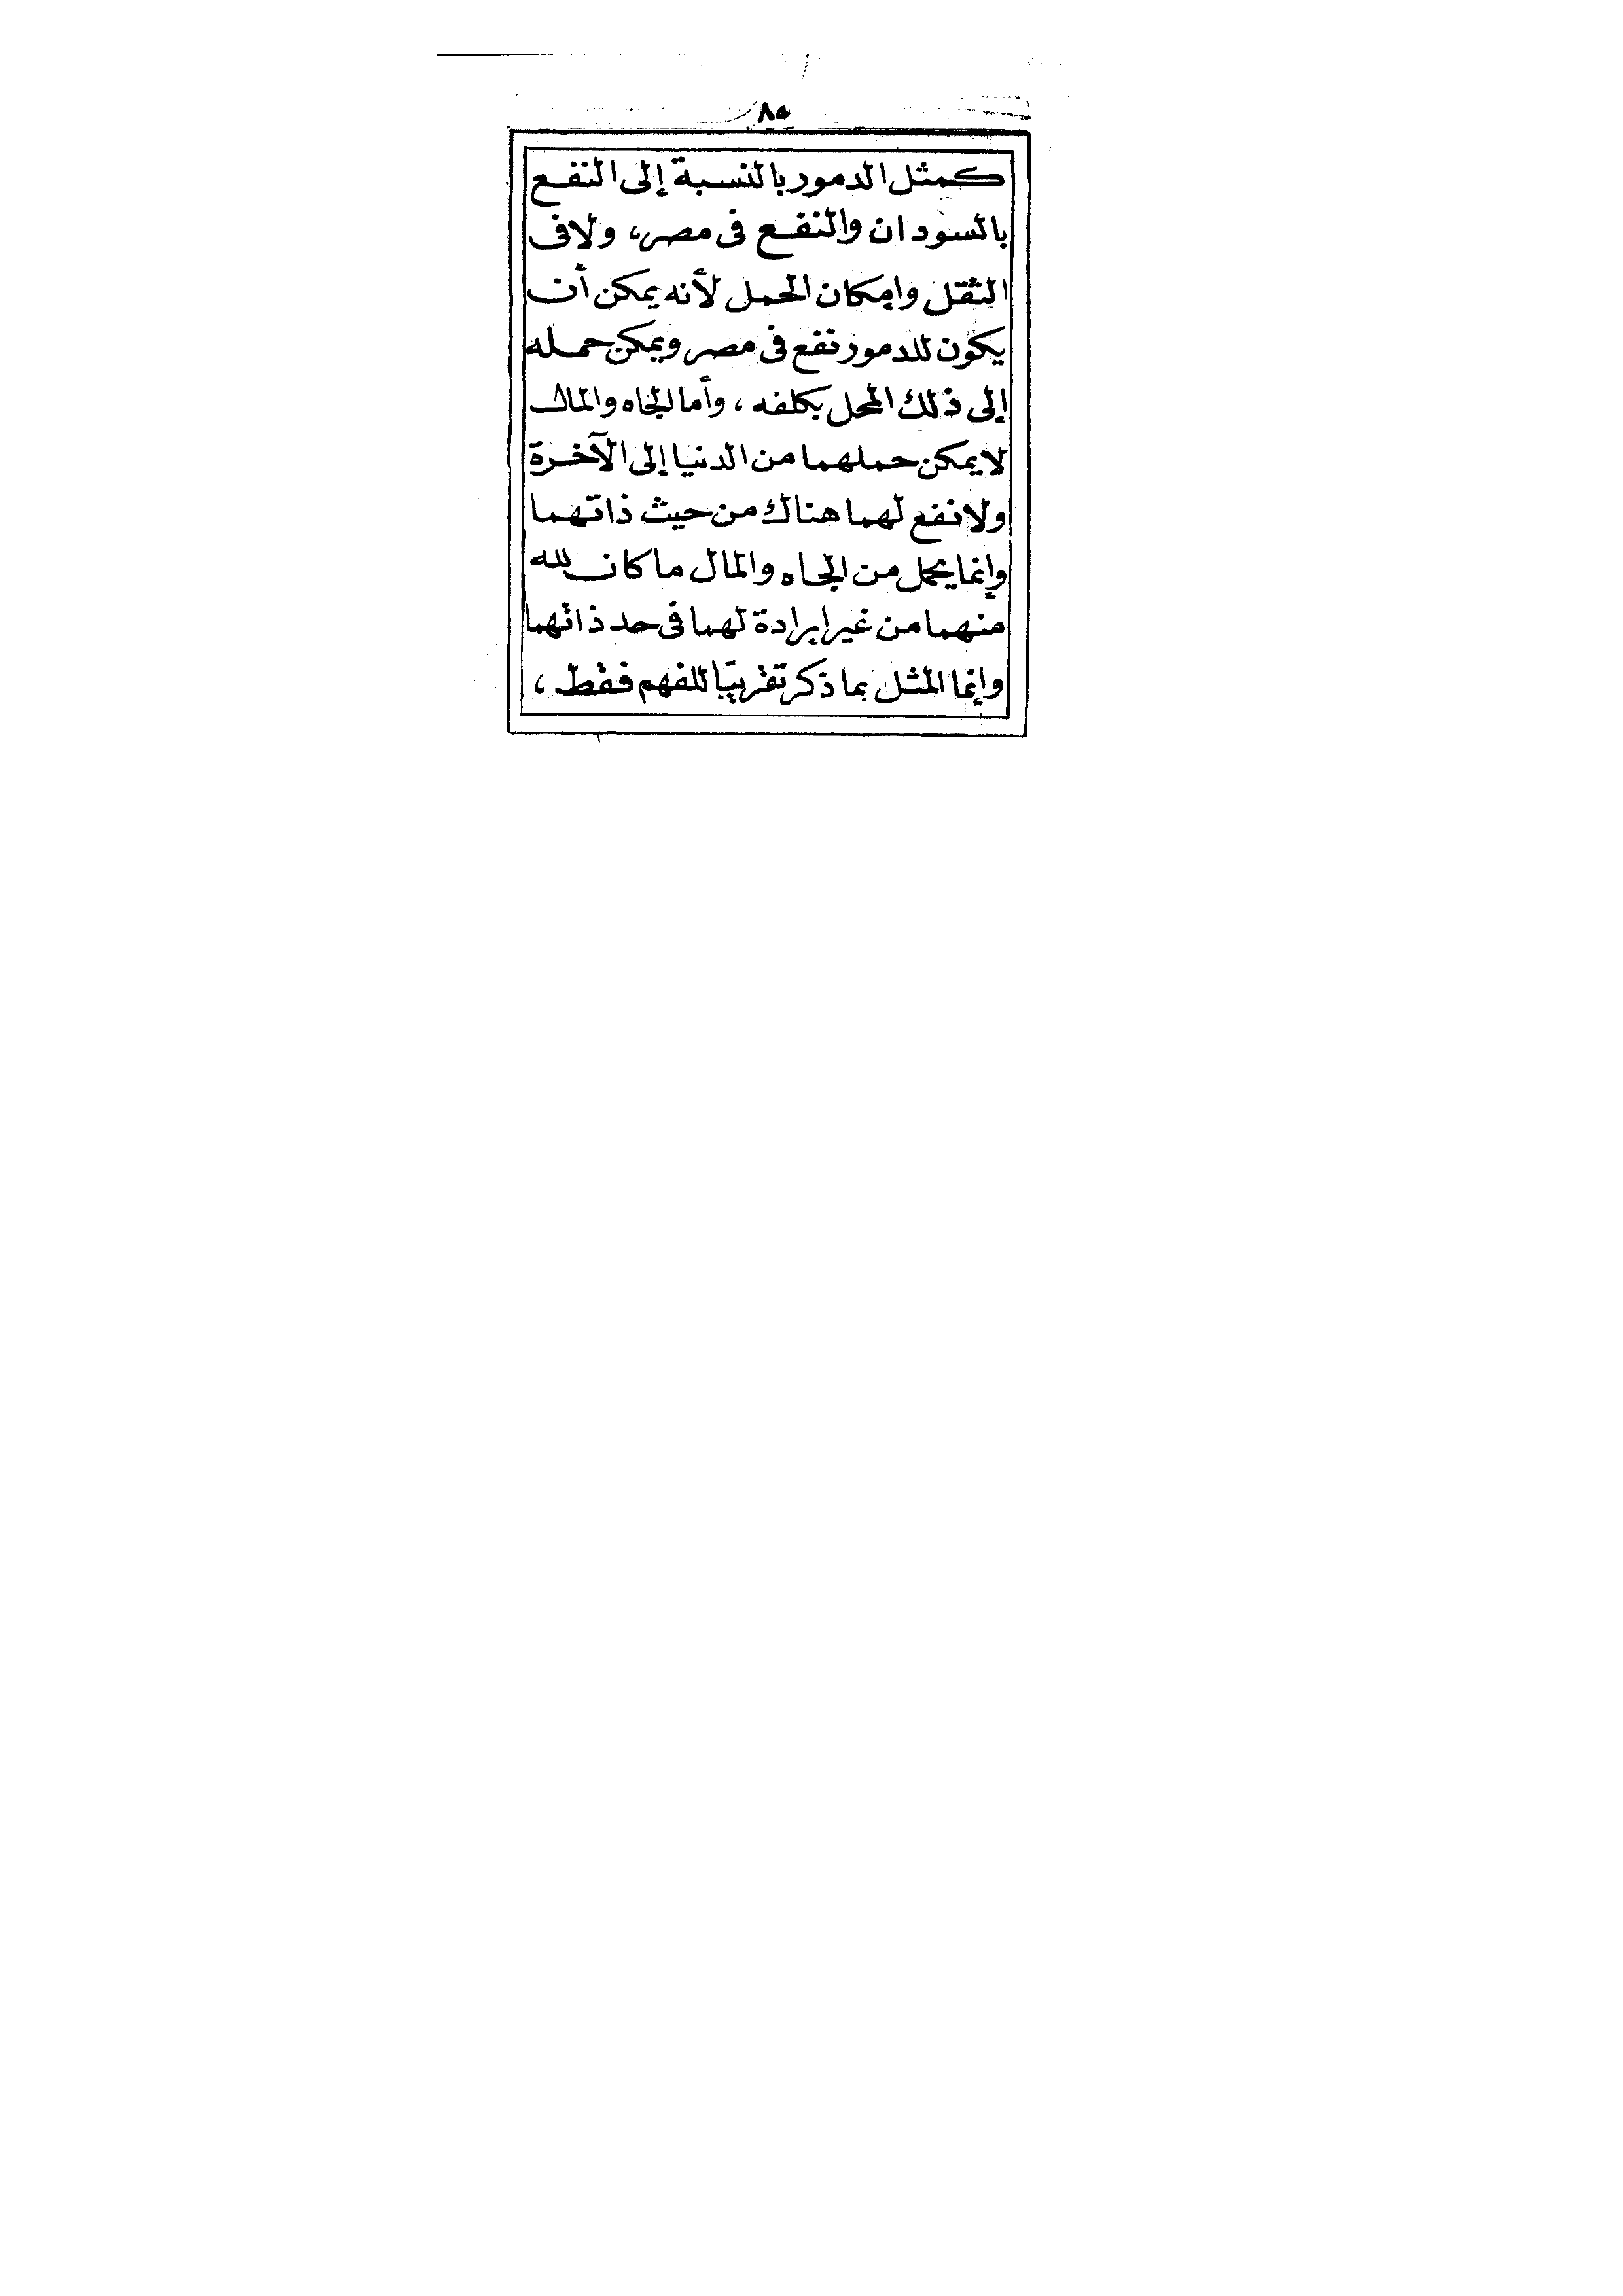 ٨٥
كمثل الدمور بالنسبة إلى النفع
بالسودان والنفع فى مصر، ولا فى
الثقل وإمكان الحمل لأنه يمكن أن
يكون للدمور نفع فى مصر ويمكن حمله
إلى ذلك المحل بكلفه ، وأما الجاه والمال
لا يمكن حملهما من الدنيا إلى الآخرة
ولا نفع لهما هناك من حيث ذاتهما
وإنما يحمل من الجاه والمال ما كان لله
منهما من غير إرادة لهما فى حد ذاتهما
وإنما المثل بما ذكر تقريبًا للفهم فقط ،